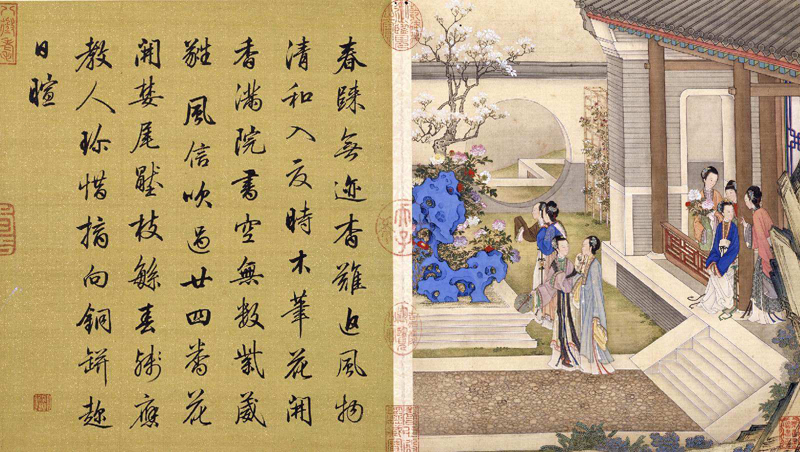 春蹤無迹杳難追風物
清和入夏時木筆花開
香滿院書空無數紫葳
蕤風信吹過廿四番花
開婪尾殿枝緐春殘應
教人珍惜摘向銅缾趂
日暄